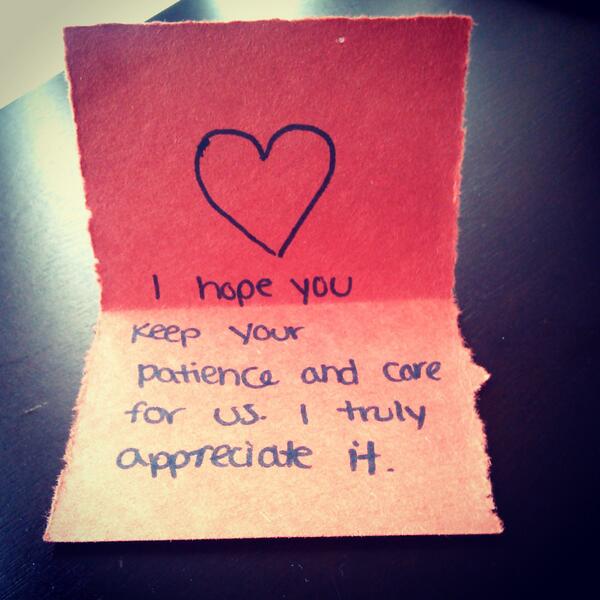 I hope you
keep your
patience and care
for us. I truly
appreciate it.